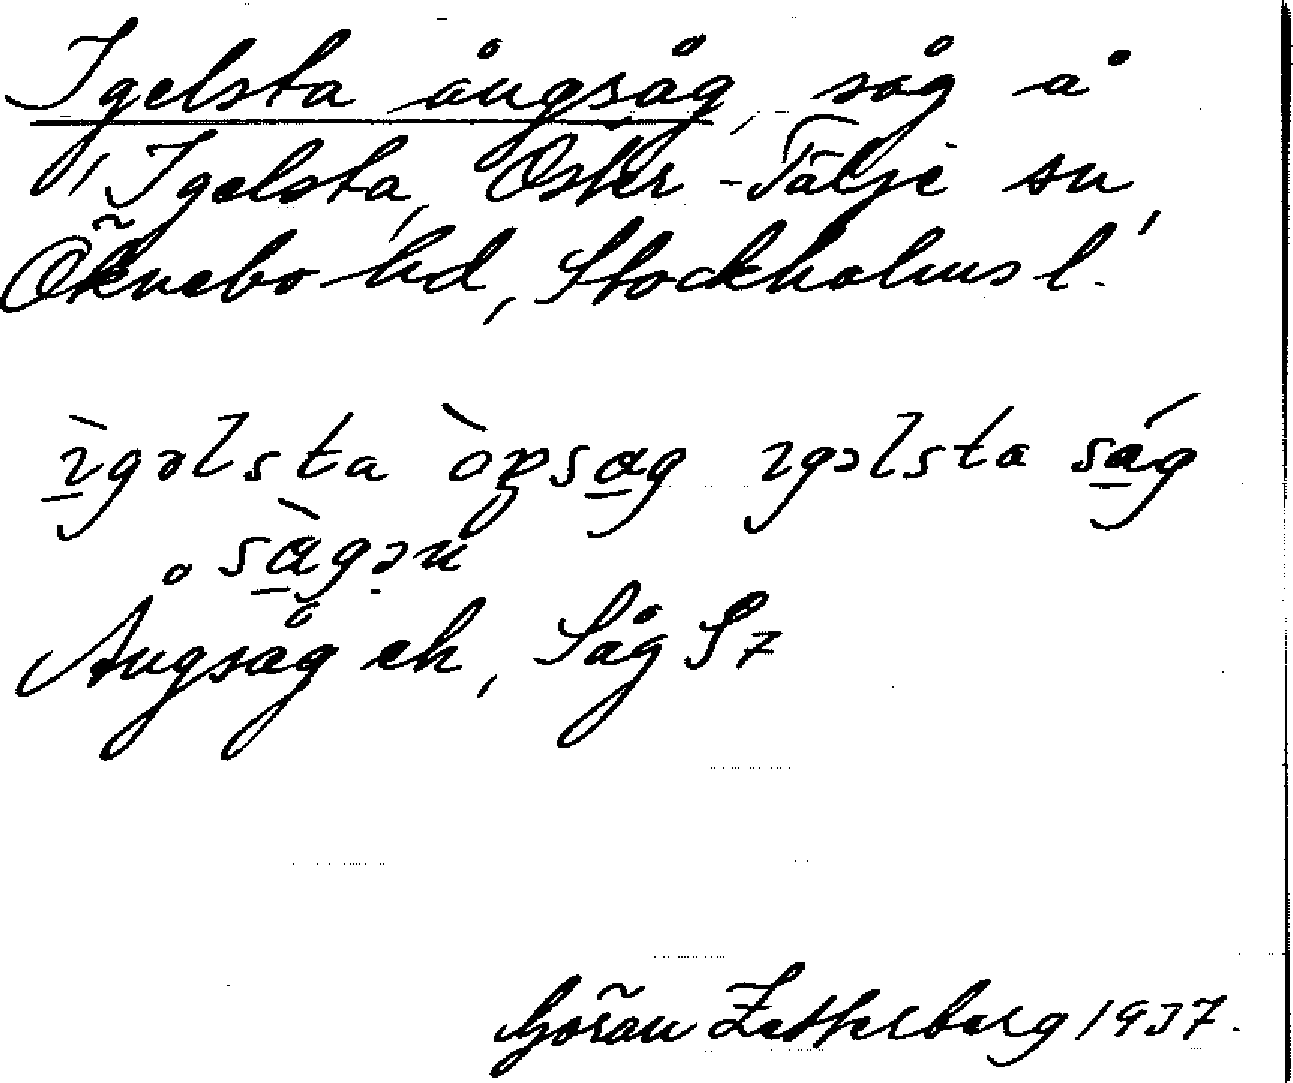 Igelsta ångsåg, såg å
Igelsta, Öster-Tälje sn,
Öknebo hd, Stockholms l.
ı̀gəlsta òŋsag ıgəlsta ság
sàgən
Ångsåg ek, Såg S7
Göran Zetterberg 1937.